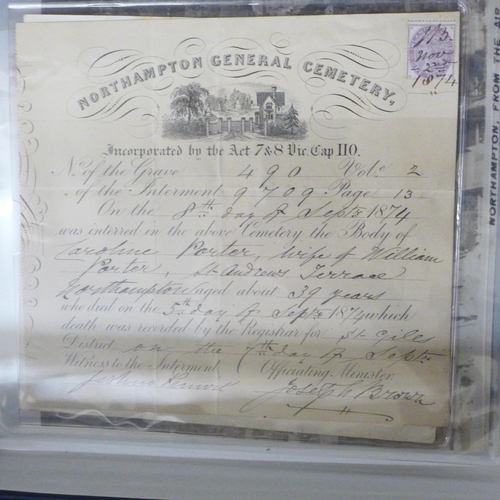 NORTHAMPTON GENERAL CEMETERY,
Nov
1874
Incorporated by the Act 7&8 Vic. Cap 110.
No. of the Grave 490 Vol. 2
of the Interment 9709 Page 13
On the 8th day of Septr 1874
was interred in the above Cemetery the Body of
Caroline Porter, wife of William
Porter, St Andrews Terrace
Northampton aged about 39 years
who died on the 5th day of Septr 1874 which
death was recorded by the Registrar for St Giles
District on the 7th day of Septr
Witness to the Interment, Officiating Minister
Joseph Brown
NORTHAMPTON, FROM THE AIR